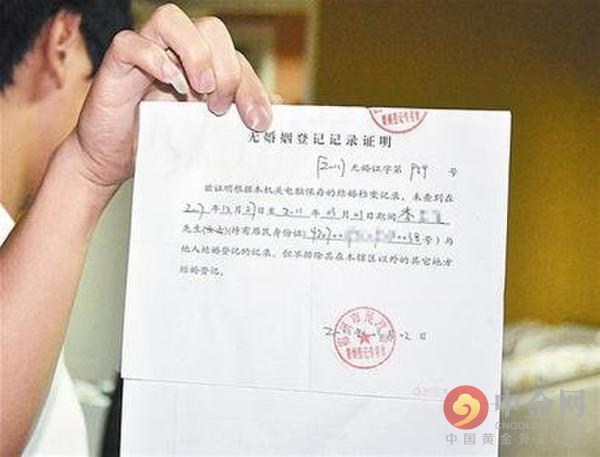 无婚姻登记记录证明
无婚证字第 号
兹证明根据本机关电脑保存的结婚档案记录,未查到在
年12月27日至2011年05月03日期间李
先生(女士)(持有居民身份证 号)与
他人结婚登记的记录。但不排除其在本辖区以外的其它地方
结婚登记。
日
婚姻登记专用章
中金网
CNGOLD
中国黄金外